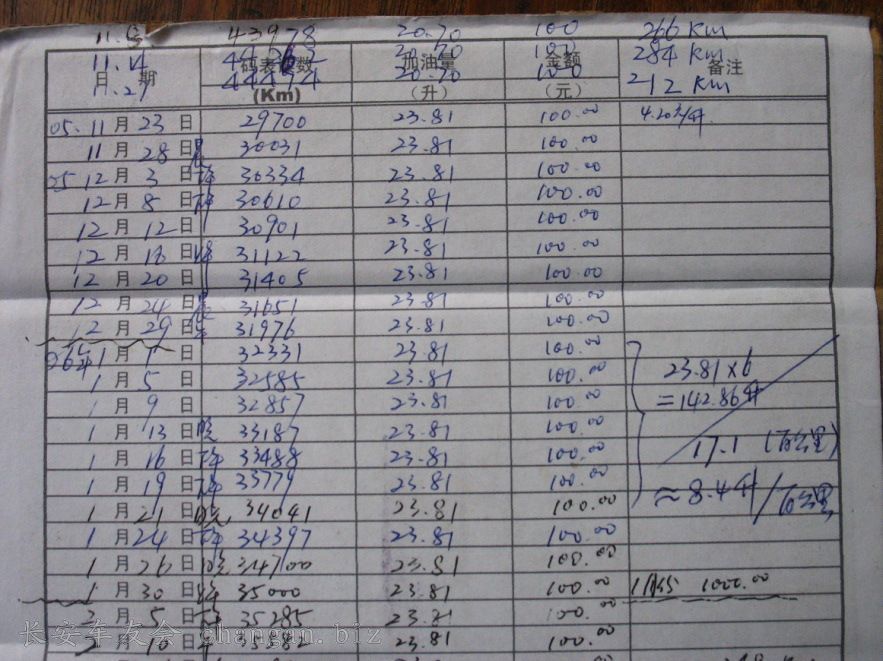 43978 20.70 100 266 Km
11.14 20.70 100 284 Km
日 期 码表 数 加油量 金额 备注
11.27 20.70 100 212 Km
(Km) (升) (元)
05.11月23日 29700 23.81 100.00 4.20元/升
11月28日 30031 23.81 100.00
12月3日 30334 23.81 100.00
12月8日 30610 23.81 100.00
12月12日 30901 23.81 100.00
12月 日 31122 23.81 100.00
12月20日 31405 23.81 100.00
12月24日 31651 23.81 100.00
12月29日 31976 23.81 100.00
06年1月1日 32331 23.81 100.00
1月5日 32585 23.81 100.00 23.81×6
1月9日 32857 23.81 100.00 =142.86升
1月13日晚 33187 23.81 100.00
1月16日 33488 23.81 100.00 17.1 (百公里)
1月19日 33779 23.81 100.00
1月21日晚 34041 23.81 100.00 ≈8.4升/百公里
1月24日 34397 23.81 100.00
1月26日 34700 23.81 100.00
1月30日 35000 23.81 100.00 1000.00
2月5日 35285 23.81 100.00
2月10日 23.81 100.00
长安车友会 changan.biz